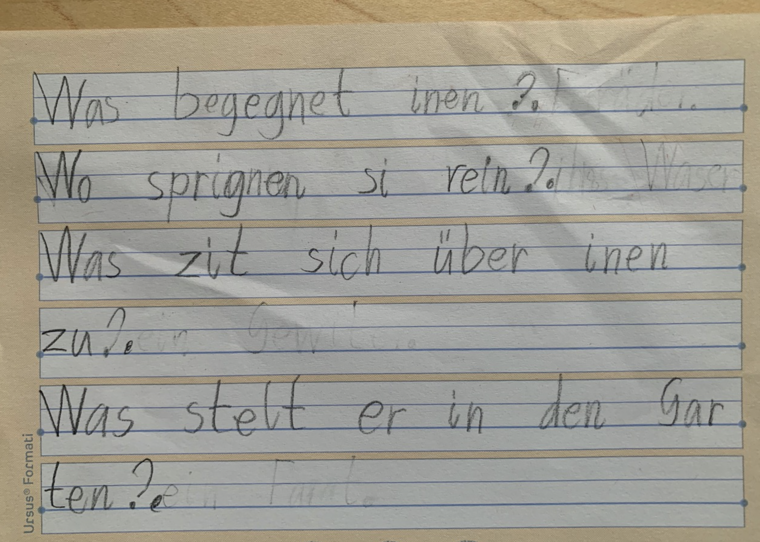 Was begegnet inen ?.
Wo sprignen si rein ?. ins Waser
Was zit sich über inen
zu ?. ein Gewiter.
Was stelt er in den Gar
ten ?. ein
Ursus® Formati